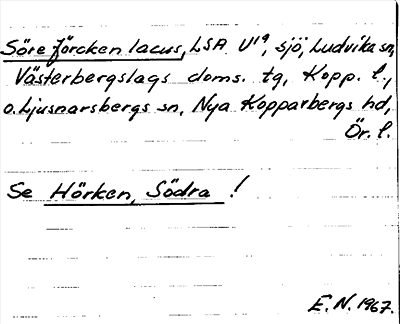 Söre förcken lacus, LSA U¹⁹, sjö, Ludvika sn,
Västerbergslags doms. tg, Kopp. l.,
o. Ljusnarsbergs sn, Nya Kopparbergs hd,
Ör. l.
Se Hörken, Södra !
E.N. 1967.